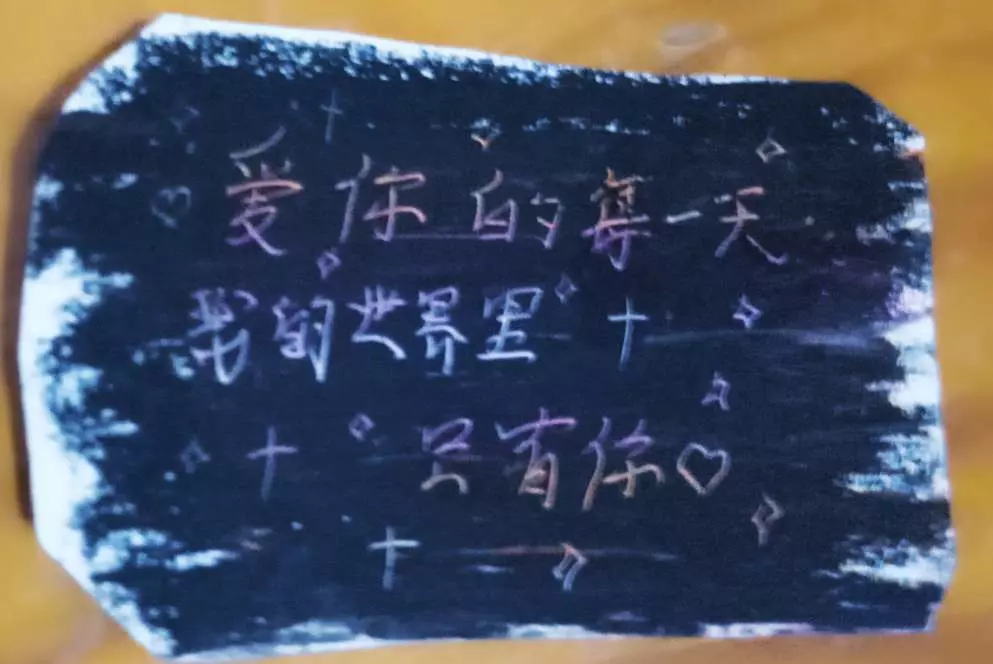 爱你的每一天
我的世界里
只有你